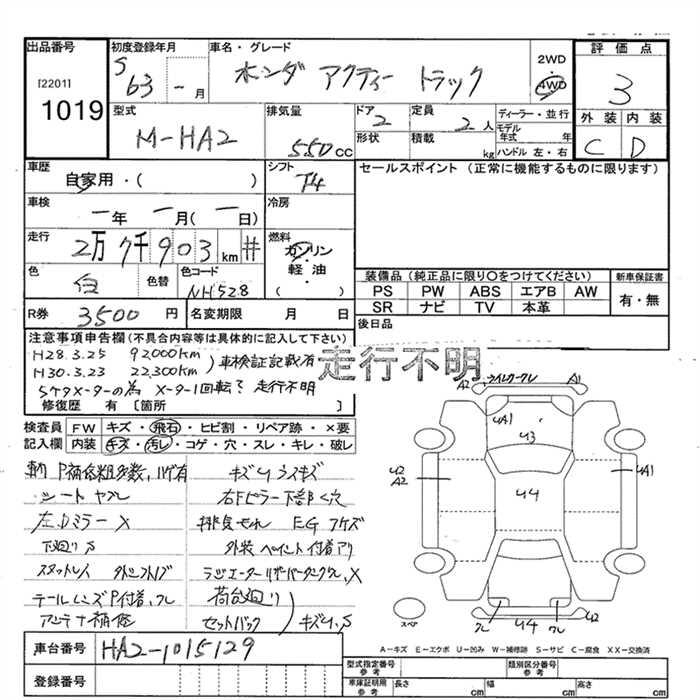 出品番号 初度登録年月 車名・グレード 評価点
[2201] S63年 - 月 ホンダ アクティー トラック 2WD 4WD 3
1019 型式 排気量 ドア 定員 ディーラー・並行 外装 内装
M-HA2 550cc 2 2人 モデル年式 年 C D
形状 積載 kg ハンドル 左・右
車歴 自家用・( ) シフト F4 セールスポイント (正常に機能するものに限ります)
車検 一年 一月(一日) 冷房
走行 2万7千903km # 燃料 ガソリン
軽油・
( )
色 白 色替 色コード NH528
装備品 (純正品に限り○をつけてください) 新車保証書
PS PW ABS エアB AW 有・無
SR ナビ TV 本革
R券 3500円 名変期限 月 日 後日品
注意事項申告欄(不具合内容等は具体的に記入して下さい)
H28.3.25 92,000km
H30.3.23 22,300km 車検証記載有
走行不明
5ケタメーターの為 メーター1回転? 走行不明
修復歴 有 [箇所
検査員記入欄 FW キズ・飛石・ヒビ割・リペア跡・×要
内装 キズ・汚レ・コゲ・穴・スレ・キレ・破レ
キズUラスキズ
シートヤブレ 右Fピラー下部く穴
左Dミラー X 排気もれ EGアケズ
下廻りS 外装ペイント付着アリ
スタットレス
テールレンズP付着,ワレ 荷台廻り
アンテナ補修 セットバック キズU,S
A2 A1
UA1
U3
U2 A2
U4
UA1
スペア
ワレ U4 ワレ U2
車台番号 HA2-1015129
登録番号
A-キズ E-エクボ U-凹み W-補修跡 S-サビ C-腐食 XX-交換済
型式指定番号 参考 類別区分番号 参考
車庫証明用 参考 長さ cm 幅 cm 高さ cm